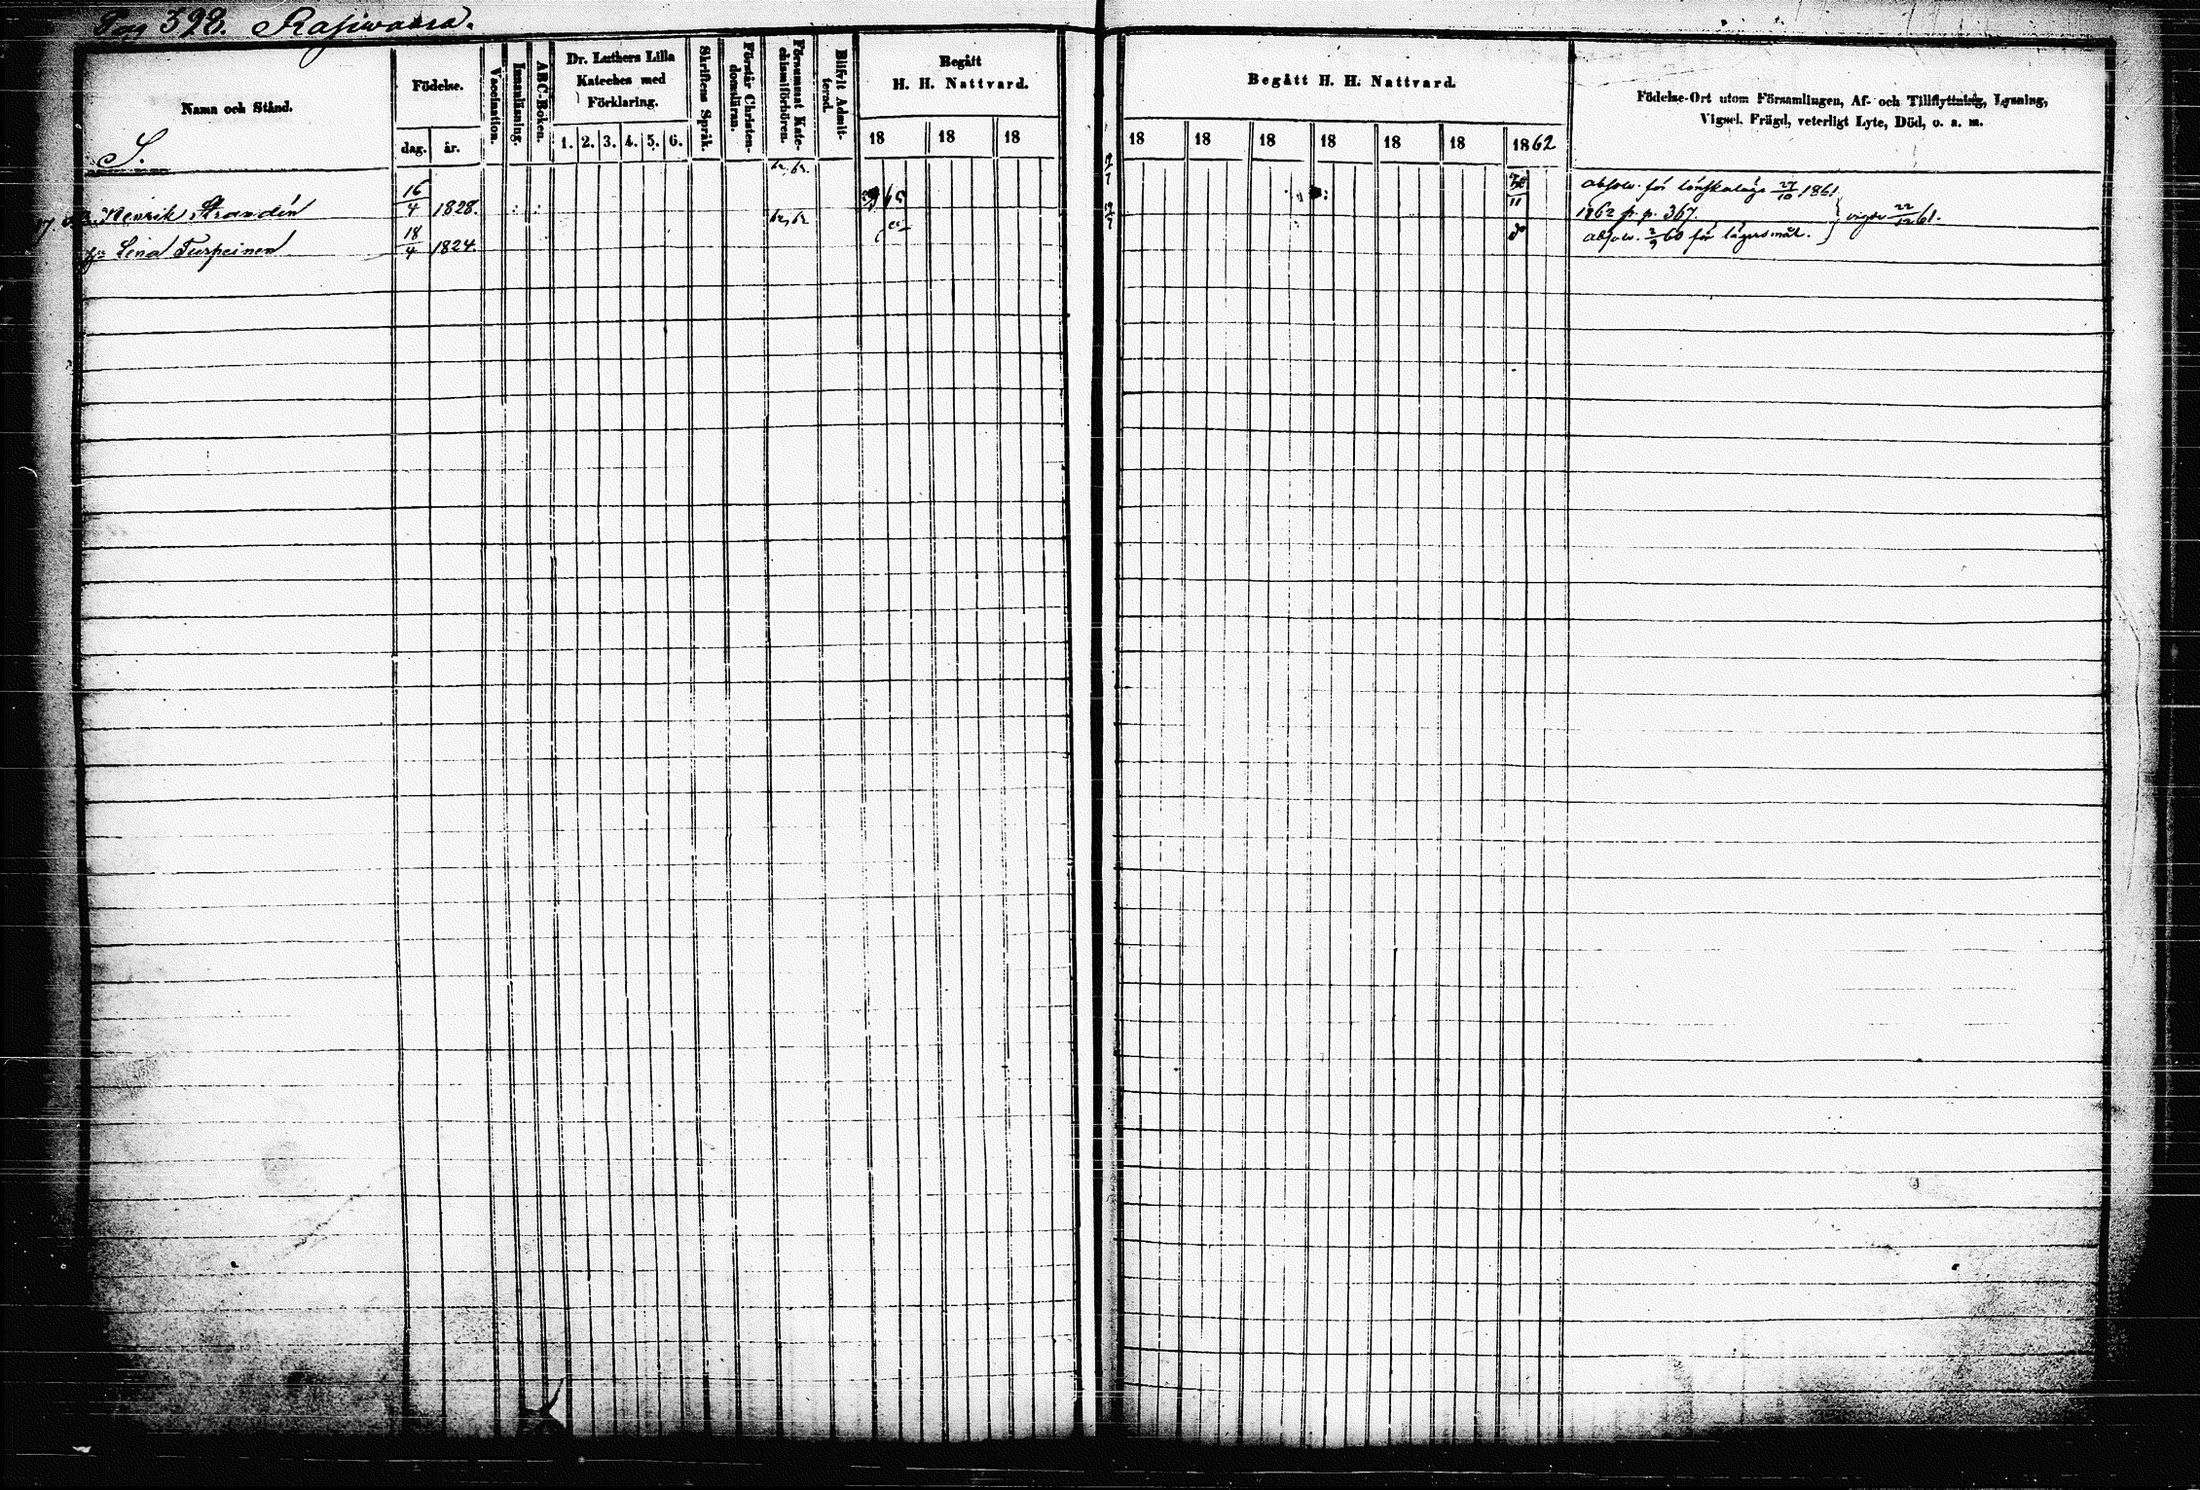 Pag 398. Rajiwaara.
Namn och Stånd.
Födelse.
dag.
år.
Vaccination.
Innanläsning.
ABC-Boken.
Dr. Luthers Lilla
Kateches med
Förklaring.
1. 2. 3. 4. 5. 6.
Skriftens Språk.
Förstår Christen-
domsläran.
Försummat Kate-
chismiförhören.
Blifvit Admit-
terad.
Begått
H. H. Nattvard.
18 18 18
Begått H. H. Nattvard.
18 18 18 18 18 18 1862
Födelse-Ort utom Församlingen, Af- och Tillflyttning, Lysning,
Vigsel, Frägd, veterligt Lyte, Död, o. a. m.
S.
Henrik Strandén 16/4 1828.
absolv. för lönskaläge 27/10 1861.
1862 fr. p. 367.
vigde 22/12 61.
Lena Turpeinen 18/4 1824.
absolv. 2/9 60 för lägersmål.